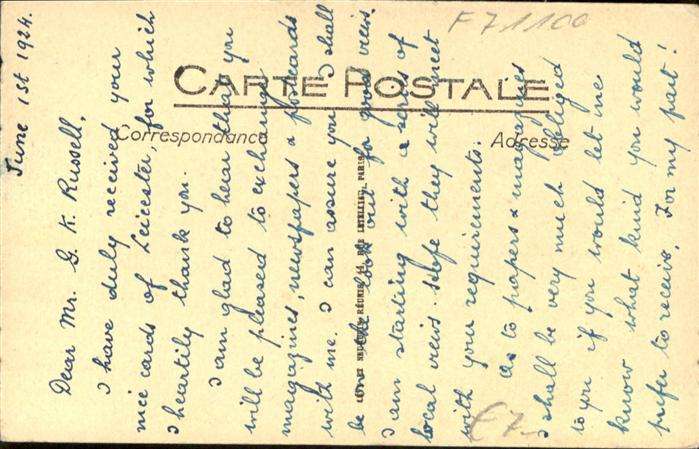 F 71100
CARTE POSTALE
Correspondance
Adresse
June 1st 1924.
Dear Mr. G. K. Russell,
I have duly received your
nice cards of Leicester for which
I heartily thank you.
I am glad to hear that you
will be pleased to exchange
magazines, newspapers & postcards
with me. I can assure you I shall
be on the look out for good views.
I am starting with a series of
local views. hope they will meet
with your requirements.
As to papers & magazines
I shall be very much obliged
to you if you would let me
know what kind you would
prefer to receive. For my part!
LEVY ET NEURDEIN RÉUNIS, 44, RUE LETELLIER, PARIS
£7-